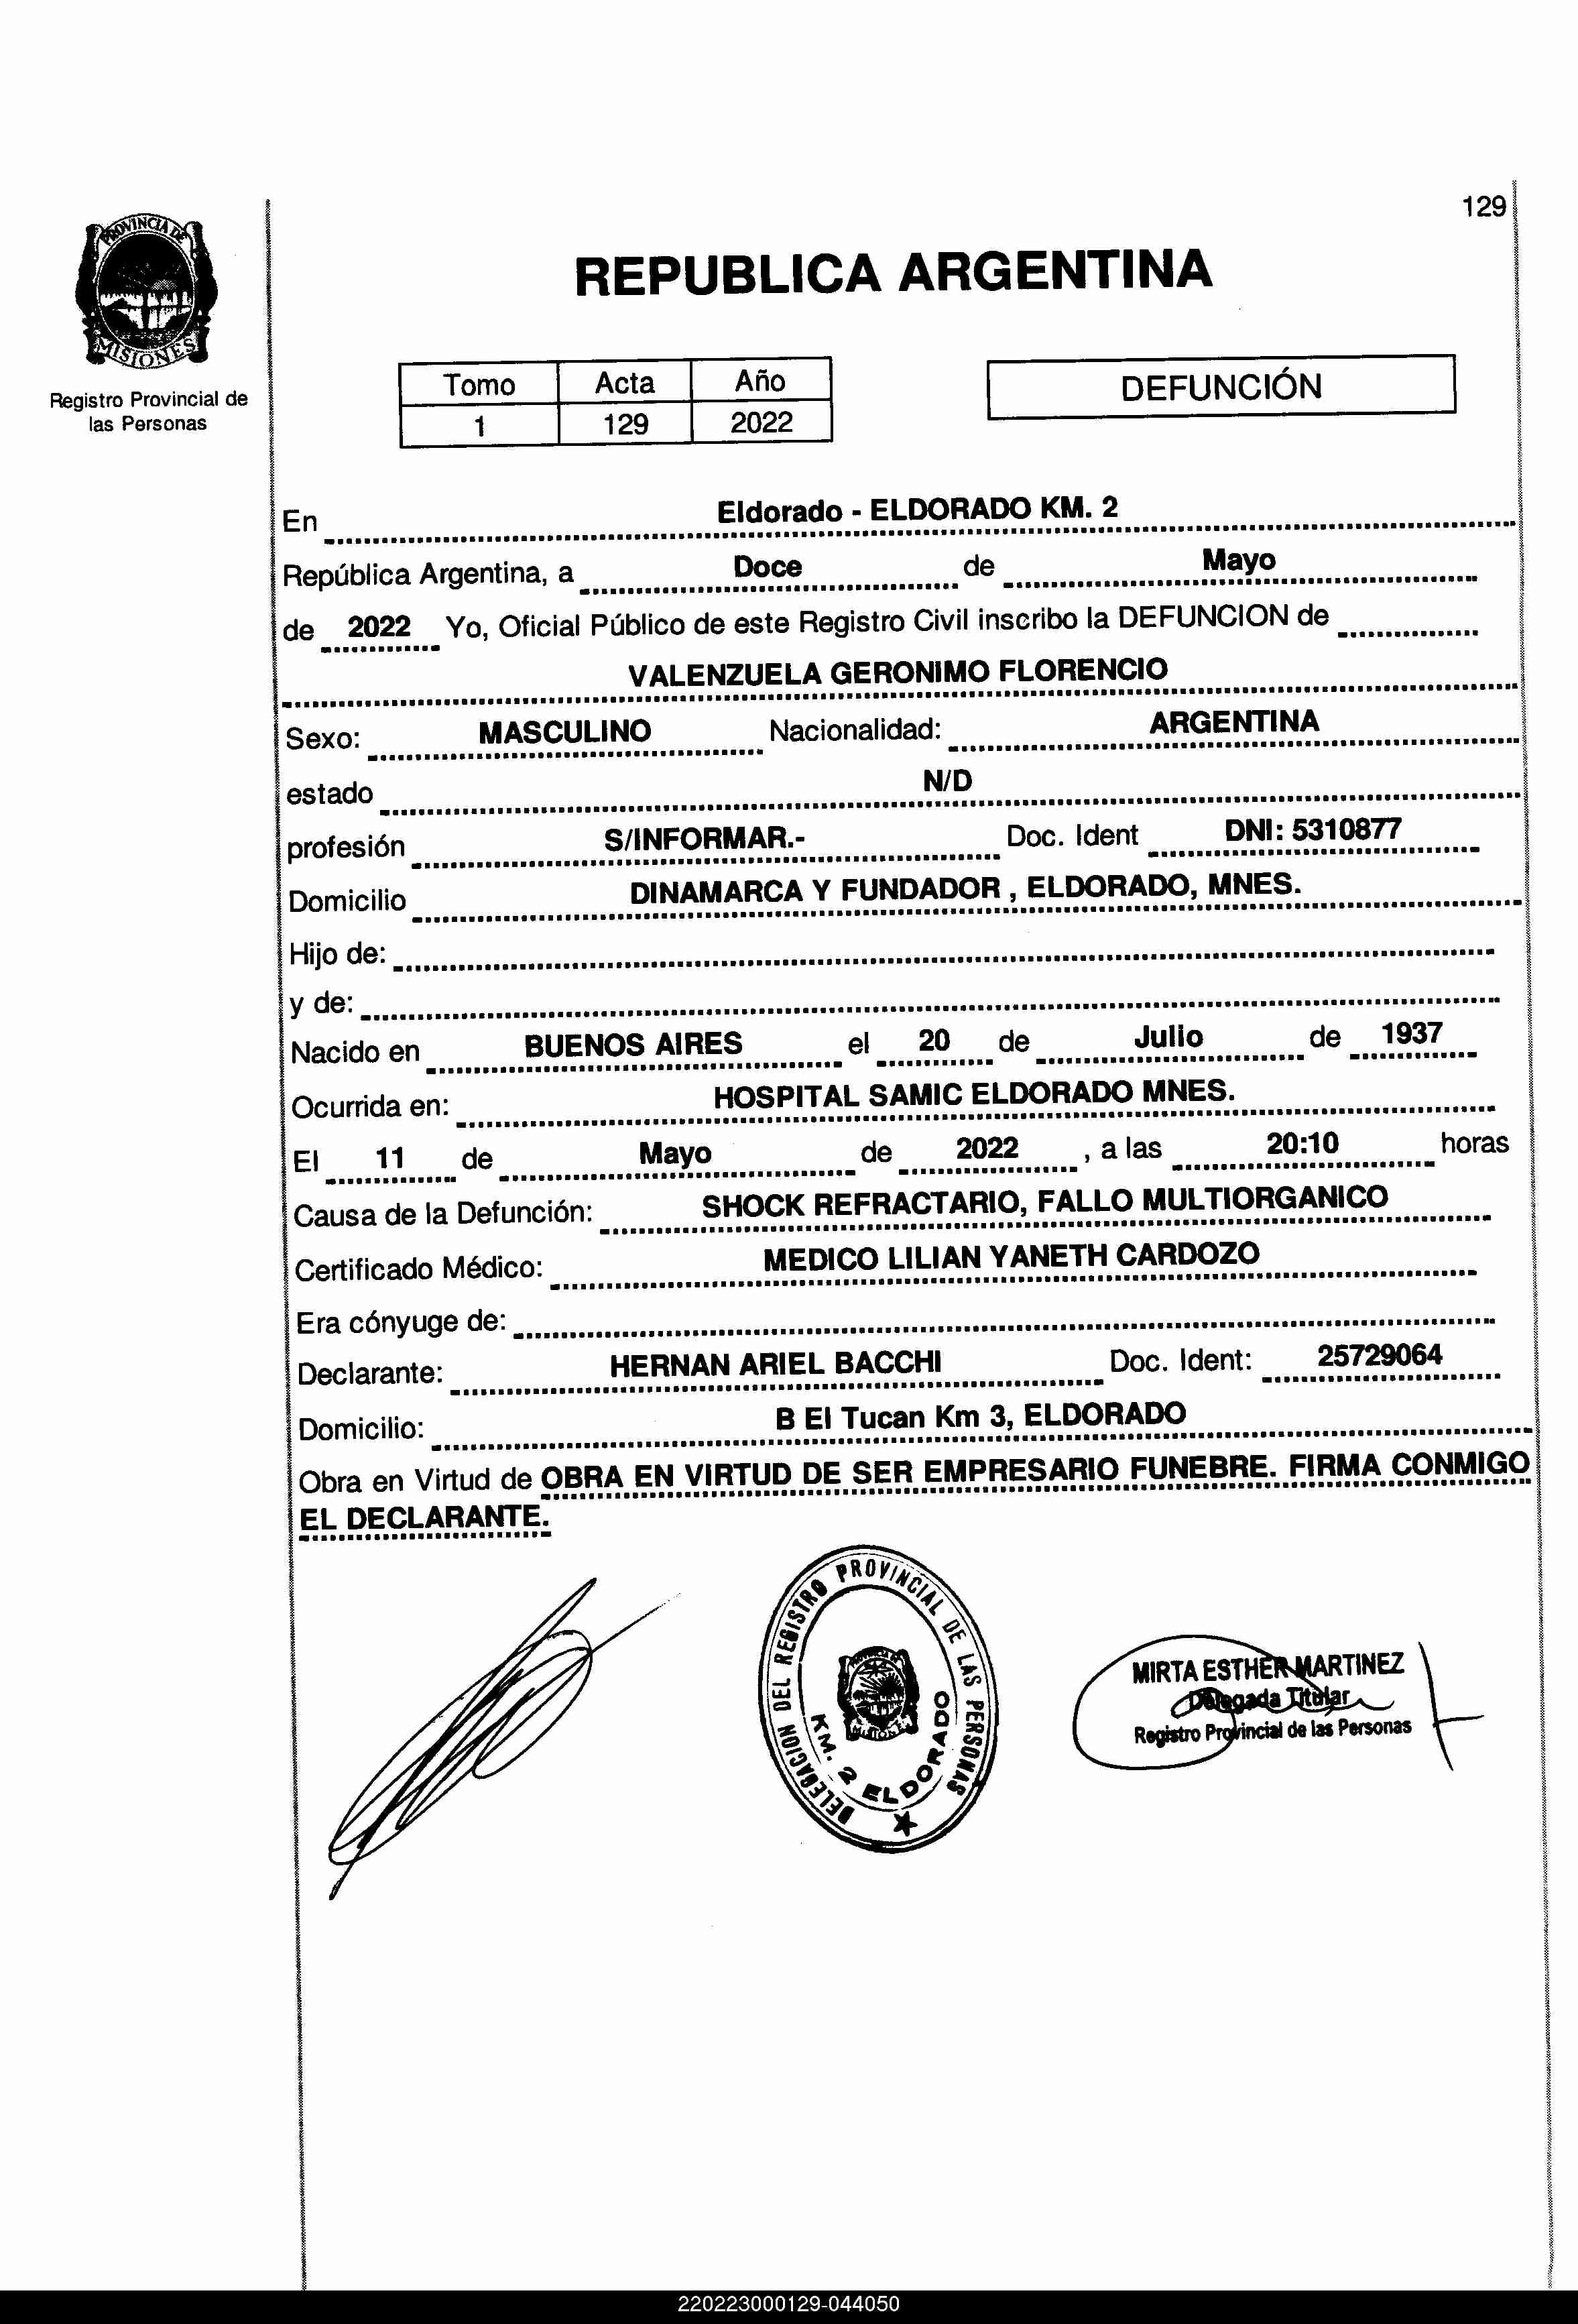 129
PROVINCIA DE
MISIONES
Registro Provincial de
las Personas
REPUBLICA ARGENTINA
Tomo Acta Año
1 129 2022
DEFUNCIÓN
En Eldorado - ELDORADO KM. 2
República Argentina, a Doce de Mayo
de 2022 Yo, Oficial Público de este Registro Civil inscribo la DEFUNCION de
VALENZUELA GERONIMO FLORENCIO
Sexo: MASCULINO Nacionalidad: ARGENTINA
estado N/D
profesión S/INFORMAR.- Doc. Ident DNI: 5310877
Domicilio DINAMARCA Y FUNDADOR , ELDORADO, MNES.
Hijo de:
y de:
Nacido en BUENOS AIRES el 20 de Julio de 1937
Ocurrida en: HOSPITAL SAMIC ELDORADO MNES.
El 11 de Mayo de 2022 , a las 20:10 horas
Causa de la Defunción: SHOCK REFRACTARIO, FALLO MULTIORGANICO
Certificado Médico: MEDICO LILIAN YANETH CARDOZO
Era cónyuge de:
Declarante: HERNAN ARIEL BACCHI Doc. Ident: 25729064
Domicilio: B El Tucan Km 3, ELDORADO
Obra en Virtud de OBRA EN VIRTUD DE SER EMPRESARIO FUNEBRE. FIRMA CONMIGO
EL DECLARANTE.
DELEGACION DEL REGISTRO PROVINCIAL DE LAS PERSONAS
KM. 2 ELDORADO
MIRTA ESTHER MARTINEZ
Delegada Titular
Registro Provincial de las Personas
220223000129-044050